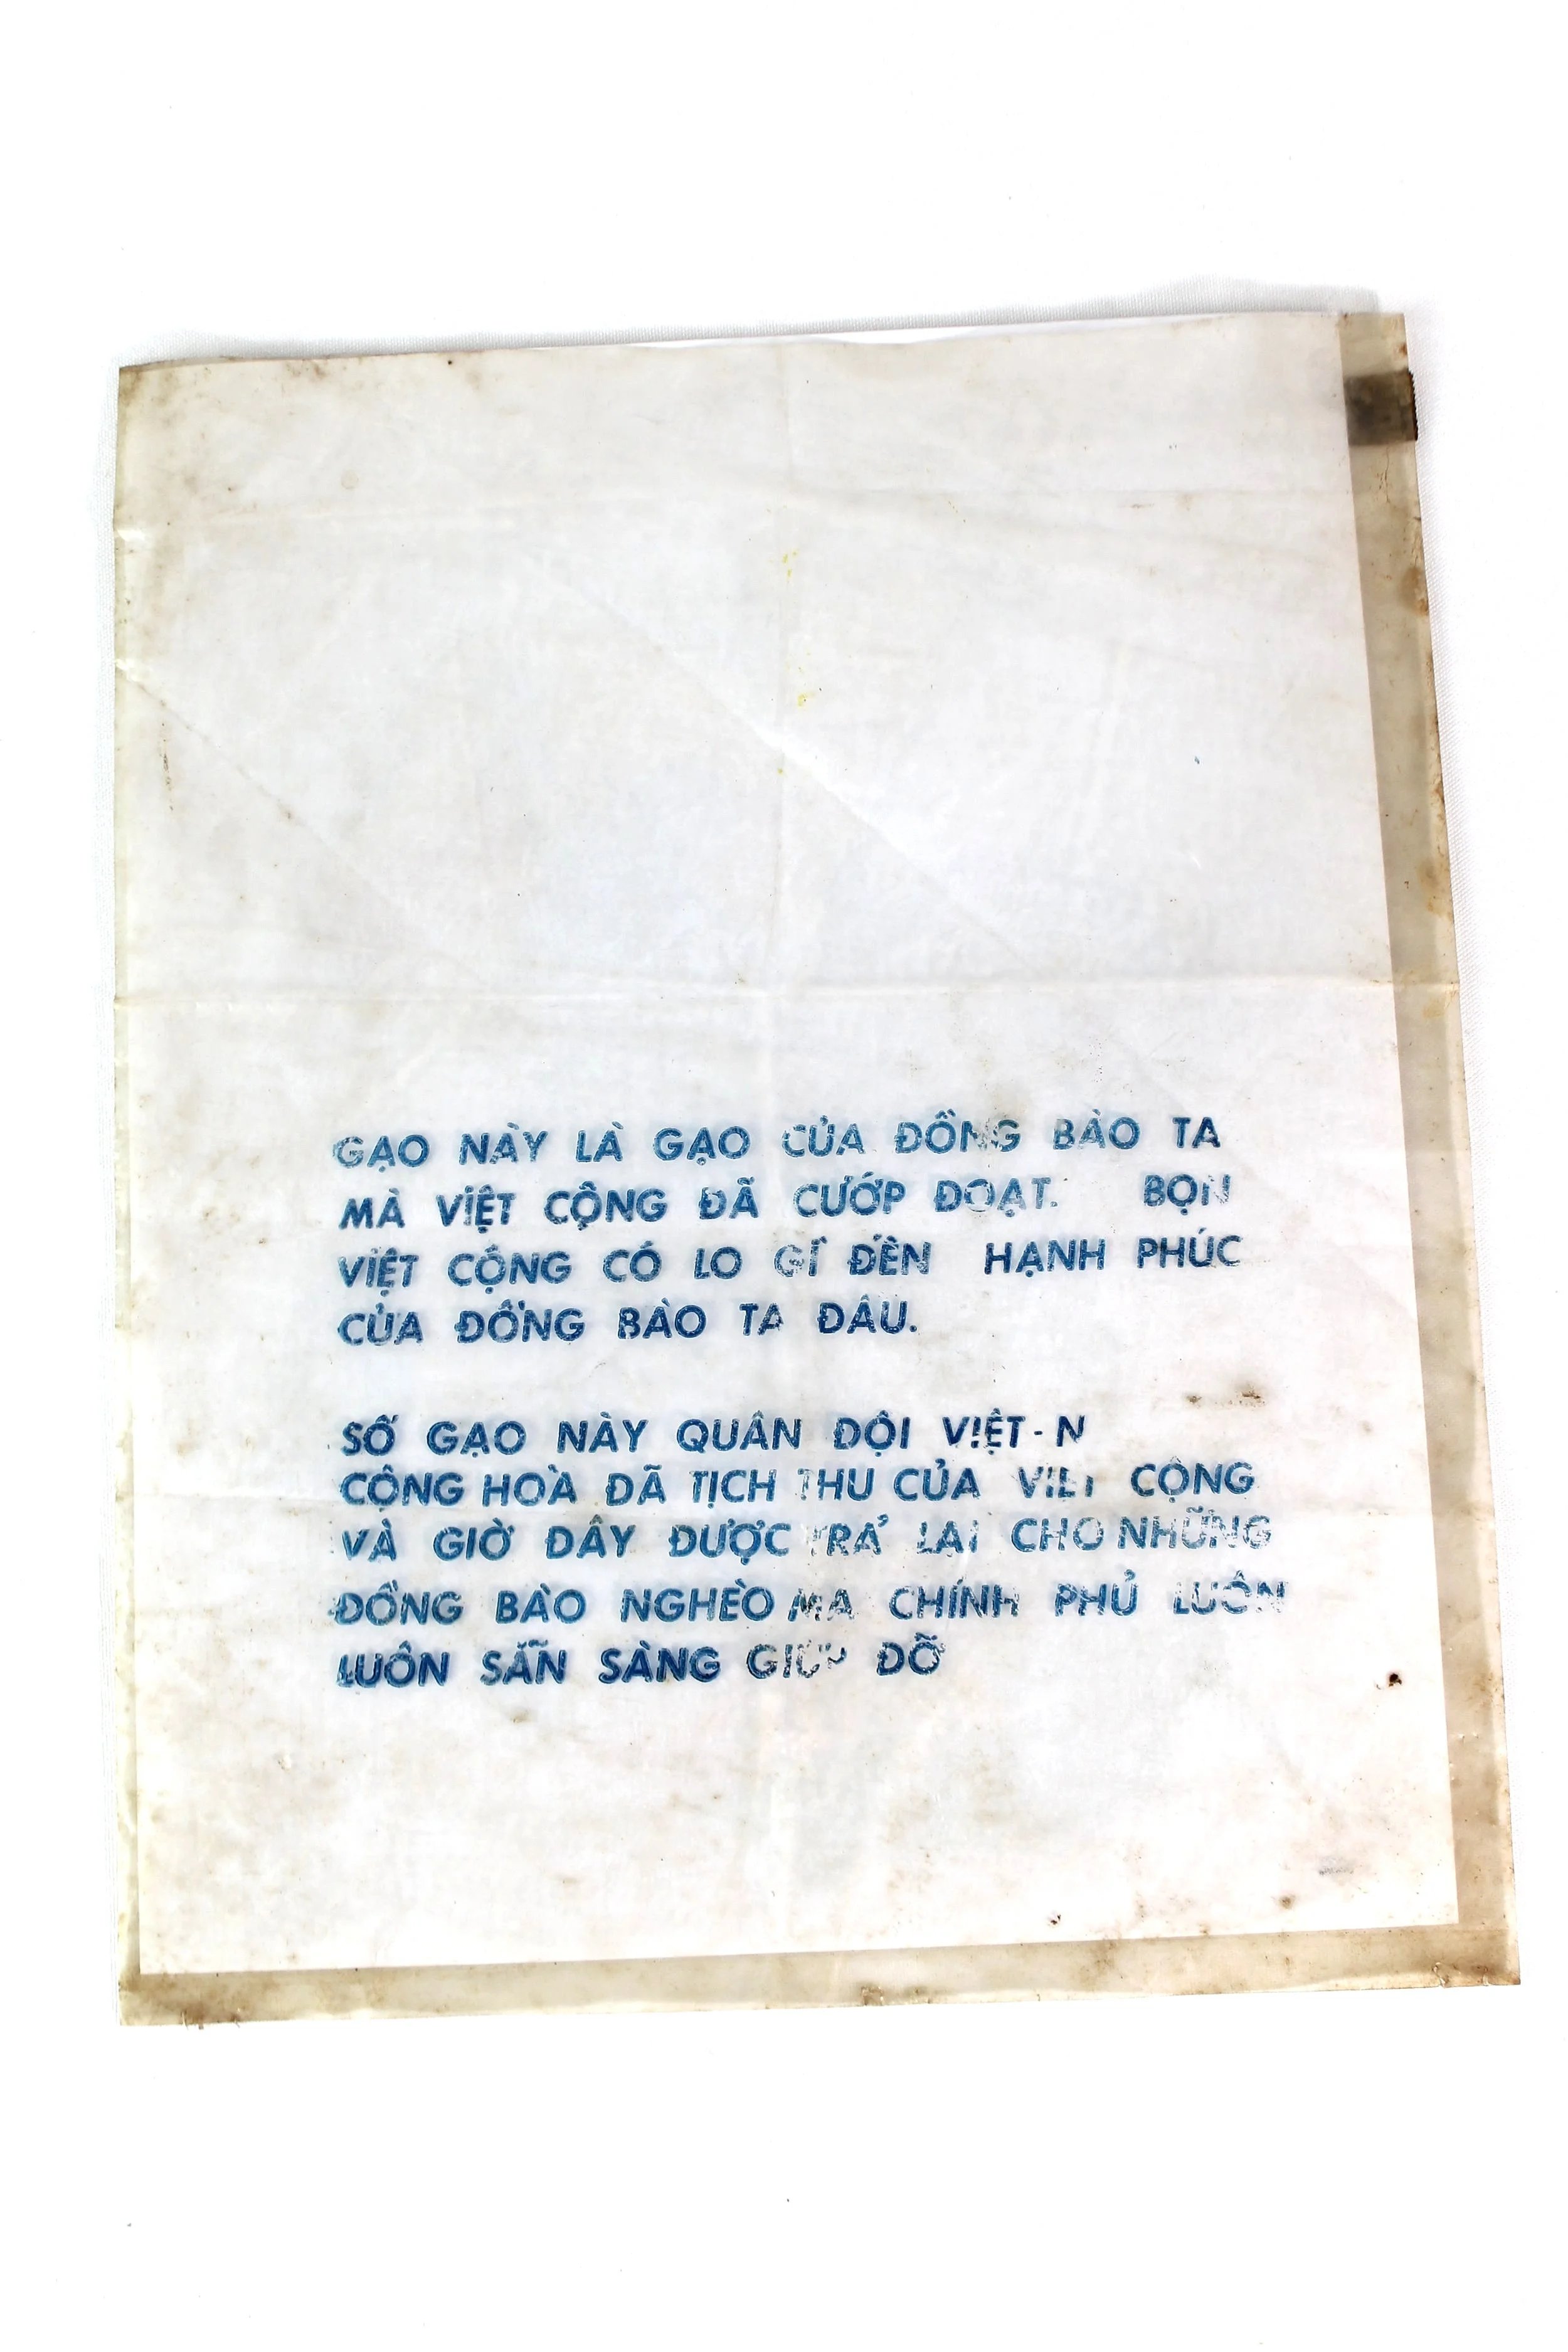 GẠO NÀY LÀ GẠO CỦA ĐỒNG BÀO TA
MÀ VIỆT CỘNG ĐÃ CƯỚP ĐOẠT. BỌN
VIỆT CỘNG CÓ LO GÌ ĐẾN HẠNH PHÚC
CỦA ĐỒNG BÀO TA ĐÂU.
SỐ GẠO NÀY QUÂN ĐỘI VIỆT-N
CỘNG HOÀ ĐÃ TỊCH THU CỦA VIỆT CỘNG
VÀ GIỜ ĐÂY ĐƯỢC TRẢ LẠI CHO NHỮNG
ĐỒNG BÀO NGHÈO MÀ CHÍNH PHỦ LUÔN
LUÔN SẴN SÀNG GIÚP ĐỠ